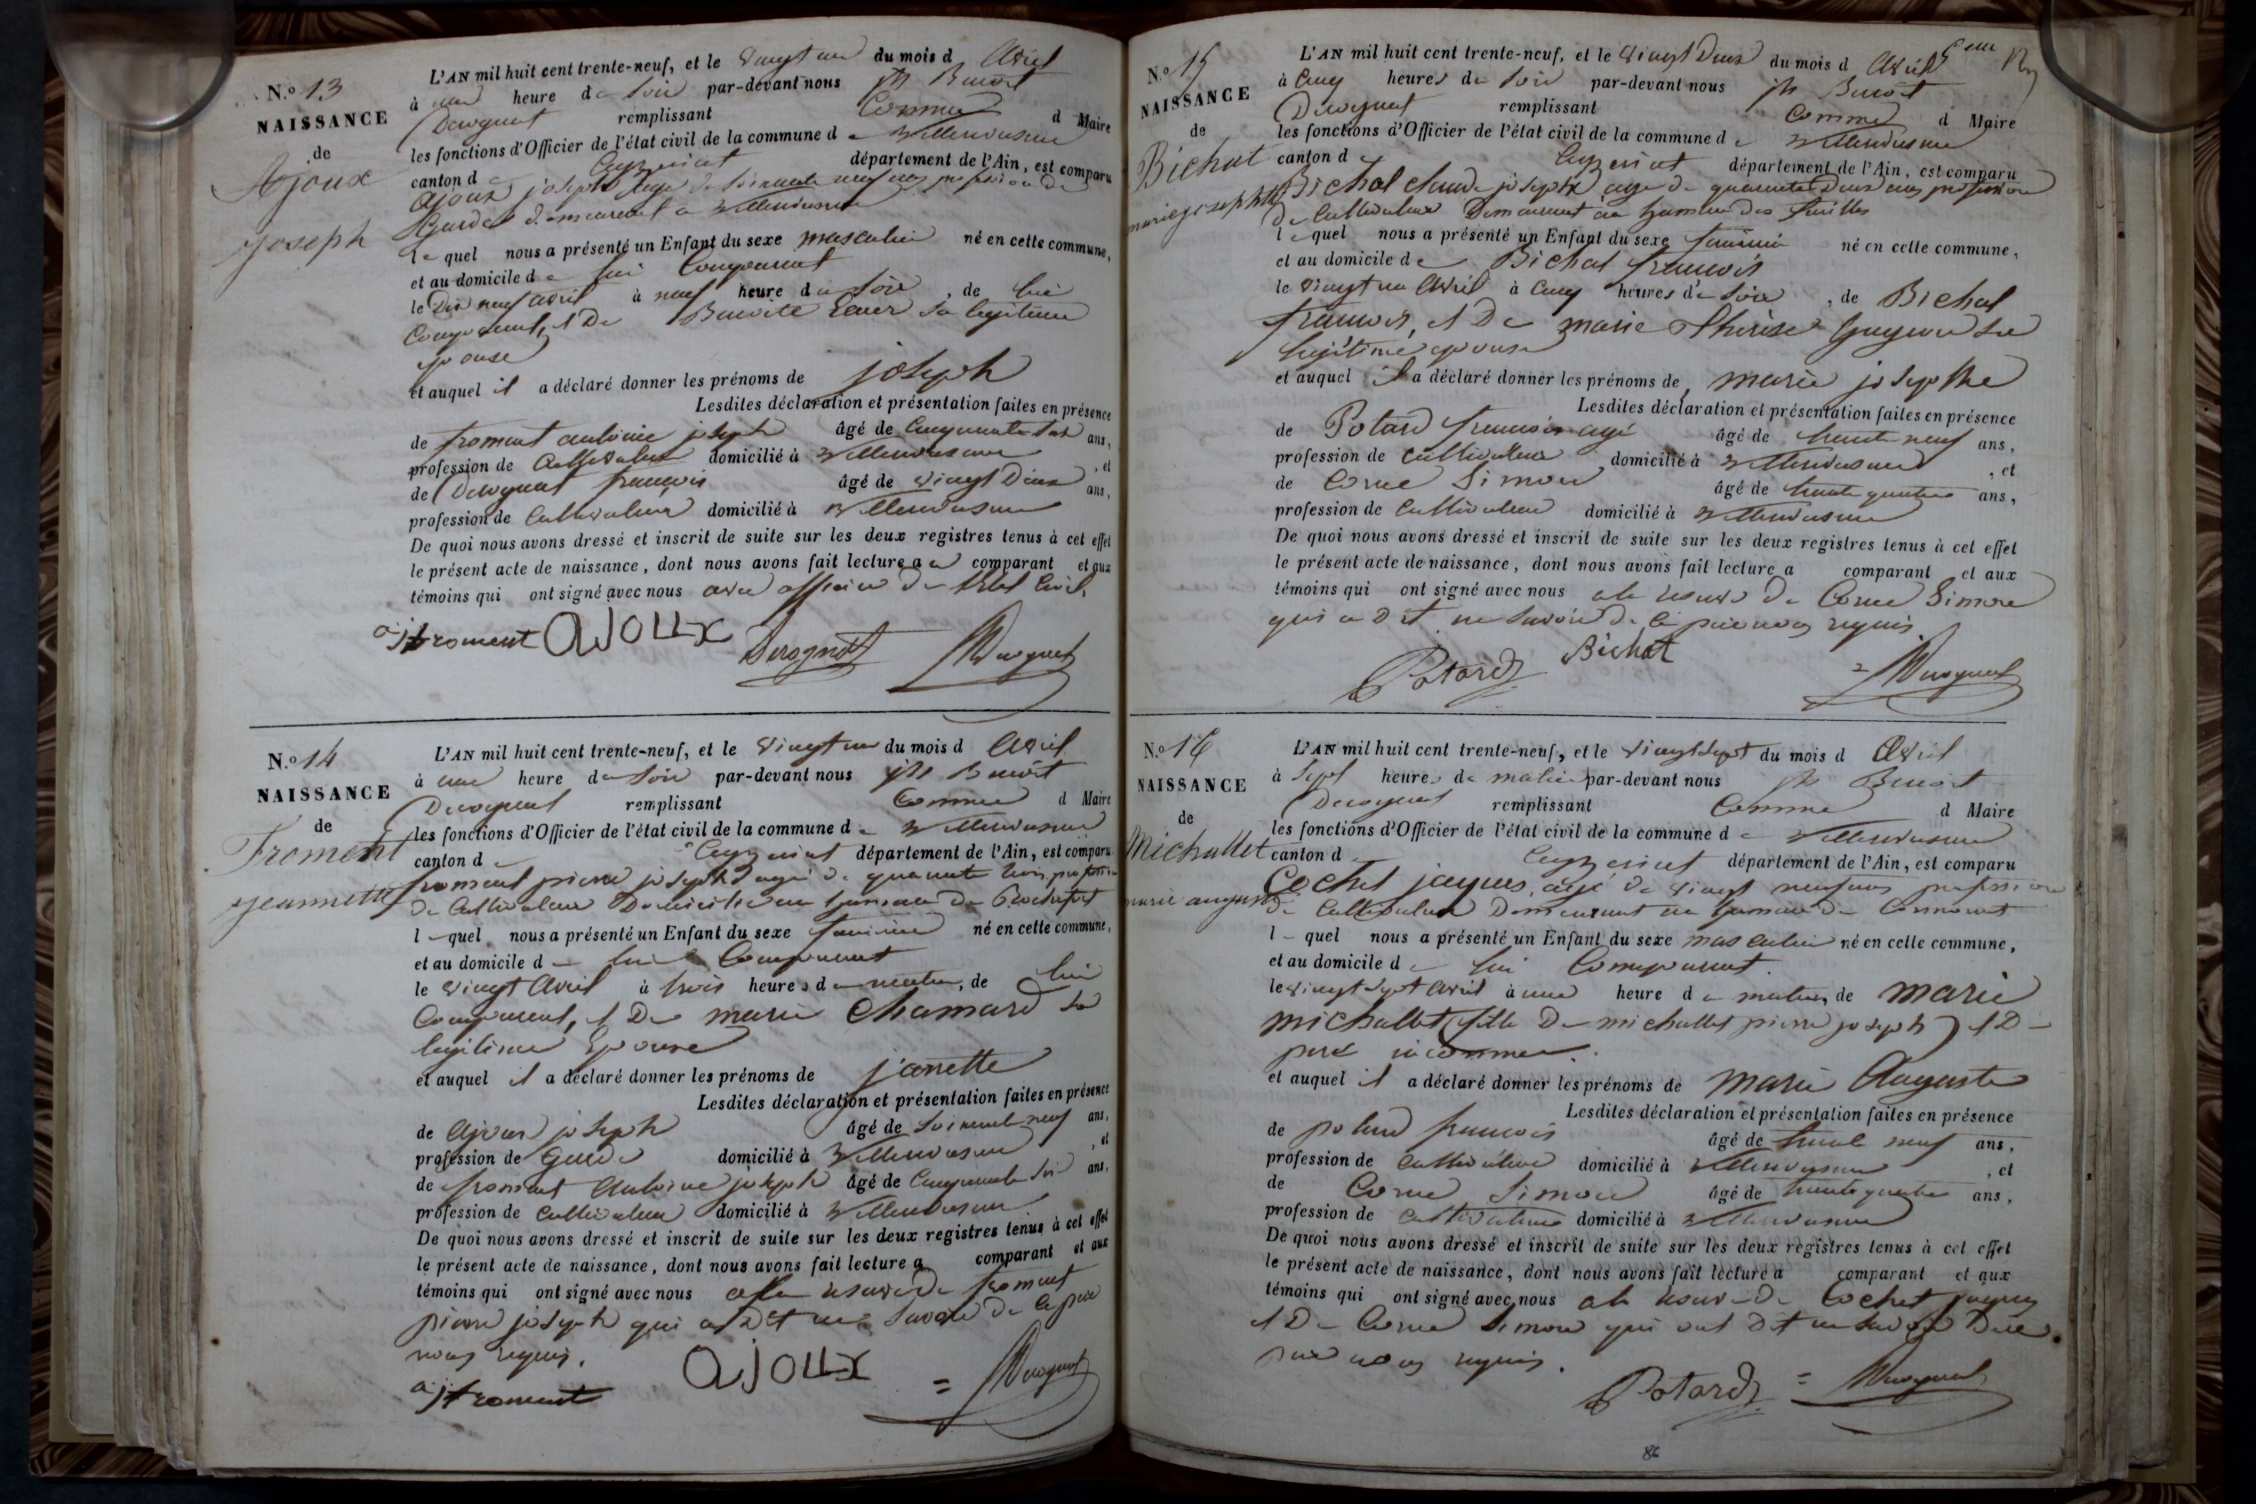 N.o 13
NAISSANCE
de
Ajoux
joseph
L'AN mil huit cent trente-neuf, et le vingt un du mois d avril
à une heure du soir par-devant nous jh Benoit
Derognat remplissant comme d Maire
les fonctions d'Officier de l'état civil de la commune de Villereversure
canton de Ceyzeriat département de l'Ain, est comparu
Ajoux joseph agé de soixante neuf ans profession de
Garde demeurant a Villereversure
le quel nous a présenté un Enfant du sexe masculin né en cette commune,
et au domicile de lui comparant
le dix neuf avril à neuf heure du soir, de lui
comparant, et De Benoite sa legitime
epouse
et auquel il a déclaré donner les prénoms de joseph
Lesdites déclaration et présentation faites en présence
de froment antoine joseph âgé de cinquante six ans,
profession de cultivateur domicilié à Villereversure, et
de Derognat françois âgé de vingt Deux ans,
profession de cultivateur domicilié à Villereversure
De quoi nous avons dressé et inscrit de suite sur les deux registres tenus à cet effet
le présent acte de naissance, dont nous avons fait lecture au comparant et aux
témoins qui ont signé avec nous officier de l'etat civil.
ajfroment AJOUX Derognat Derognat
N.o 14
NAISSANCE
de
Froment
jeannette
L'AN mil huit cent trente-neuf, et le vingt un du mois d avril
à une heure du soir par-devant nous jh Benoit
Derognat remplissant comme d Maire
les fonctions d'Officier de l'état civil de la commune de Villereversure
canton de Ceyzeriat département de l'Ain, est comparu
froment pierre joseph agé de quarante trois, profession
de cultivateur Domicilié au hameau de Rochefort
le quel nous a présenté un Enfant du sexe feminin né en cette commune,
et au domicile de lui comparant
le vingt avril à trois heures du matin, de lui
comparant, et De marie chamard sa
legitime Epouse
et auquel il a déclaré donner les prénoms de janette
Lesdites déclaration et présentation faites en présence
de Ajoux joseph âgé de soixante neuf ans,
profession de Garde domicilié à Villereversure, et
de froment antoine joseph âgé de cinquante six ans,
profession de cultivateur domicilié à Villereversure
De quoi nous avons dressé et inscrit de suite sur les deux registres tenus à cet effet
le présent acte de naissance, dont nous avons fait lecture a comparant et aux
témoins qui ont signé avec nous a la reserve de froment
pierre joseph qui a dit ne savoir de ce par
nous requis.
ajfroment AJOUX = Derognat
N.o 15
NAISSANCE
de
Bichat
marie josephte
L'AN mil huit cent trente-neuf, et le vingt Deux du mois d avril
à cinq heures du soir par-devant nous jh Benoit
Derognat remplissant comme d Maire
les fonctions d'Officier de l'état civil de la commune de Villereversure
canton de Ceyzeriat département de l'Ain, est comparu
Bichat claude joseph agé de quarante Deux ans profession
de cultivateur Demeurant au hameau des
le quel nous a présenté un Enfant du sexe feminin né en cette commune,
et au domicile de Bichat francois
le vingt un avril à cinq heures du soir, de Bichat
francois, et De marie thérèse Guyon sa
legitime epouse
et auquel il a déclaré donner les prénoms de marie josepthe
Lesdites déclaration et présentation faites en présence
de Potard francois agé âgé de trente neuf ans,
profession de cultivateur domicilié à Villereversure, et
de Corne Simon âgé de trente quatre ans,
profession de cultivateur domicilié à Villereversure
De quoi nous avons dressé et inscrit de suite sur les deux registres tenus à cet effet
le présent acte de naissance, dont nous avons fait lecture a comparant et aux
témoins qui ont signé avec nous a la reserve de Corne Simon
qui a dit ne savoir de ce par nous requis
Potard Bichat Derognat
N.o 16
NAISSANCE
de
Michallet
marie auguste
L'AN mil huit cent trente-neuf, et le vingt sept du mois d avril
à sept heures du matin par-devant nous jh Benoit
Derognat remplissant comme d Maire
les fonctions d'Officier de l'état civil de la commune de Villereversure
canton de Ceyzeriat département de l'Ain, est comparu
Cochet jaques, agé de vingt neuf ans profession
de cultivateur Demeurant au hameau de
le quel nous a présenté un Enfant du sexe masculin né en cette commune,
et au domicile de lui comparant.
le vingt sept avril à une heure du matin, de marie
michallet (fille De michallet pierre joseph) et De
pere inconnu.
et auquel il a déclaré donner les prénoms de marie Auguste
Lesdites déclaration et présentation faites en présence
de potard francois âgé de trente neuf ans,
profession de cultivateur domicilié à Villereversure, et
de Corne Simon âgé de trente quatre ans,
profession de cultivateur domicilié à Villereversure
De quoi nous avons dressé et inscrit de suite sur les deux registres tenus à cet effet
le présent acte de naissance, dont nous avons fait lecture a comparant et aux
témoins qui ont signé avec nous a la reserve de Cochet jaques
et De Corne Simon qui ont dit ne savoir De ce
par nous requis.
Potard = Derognat
86